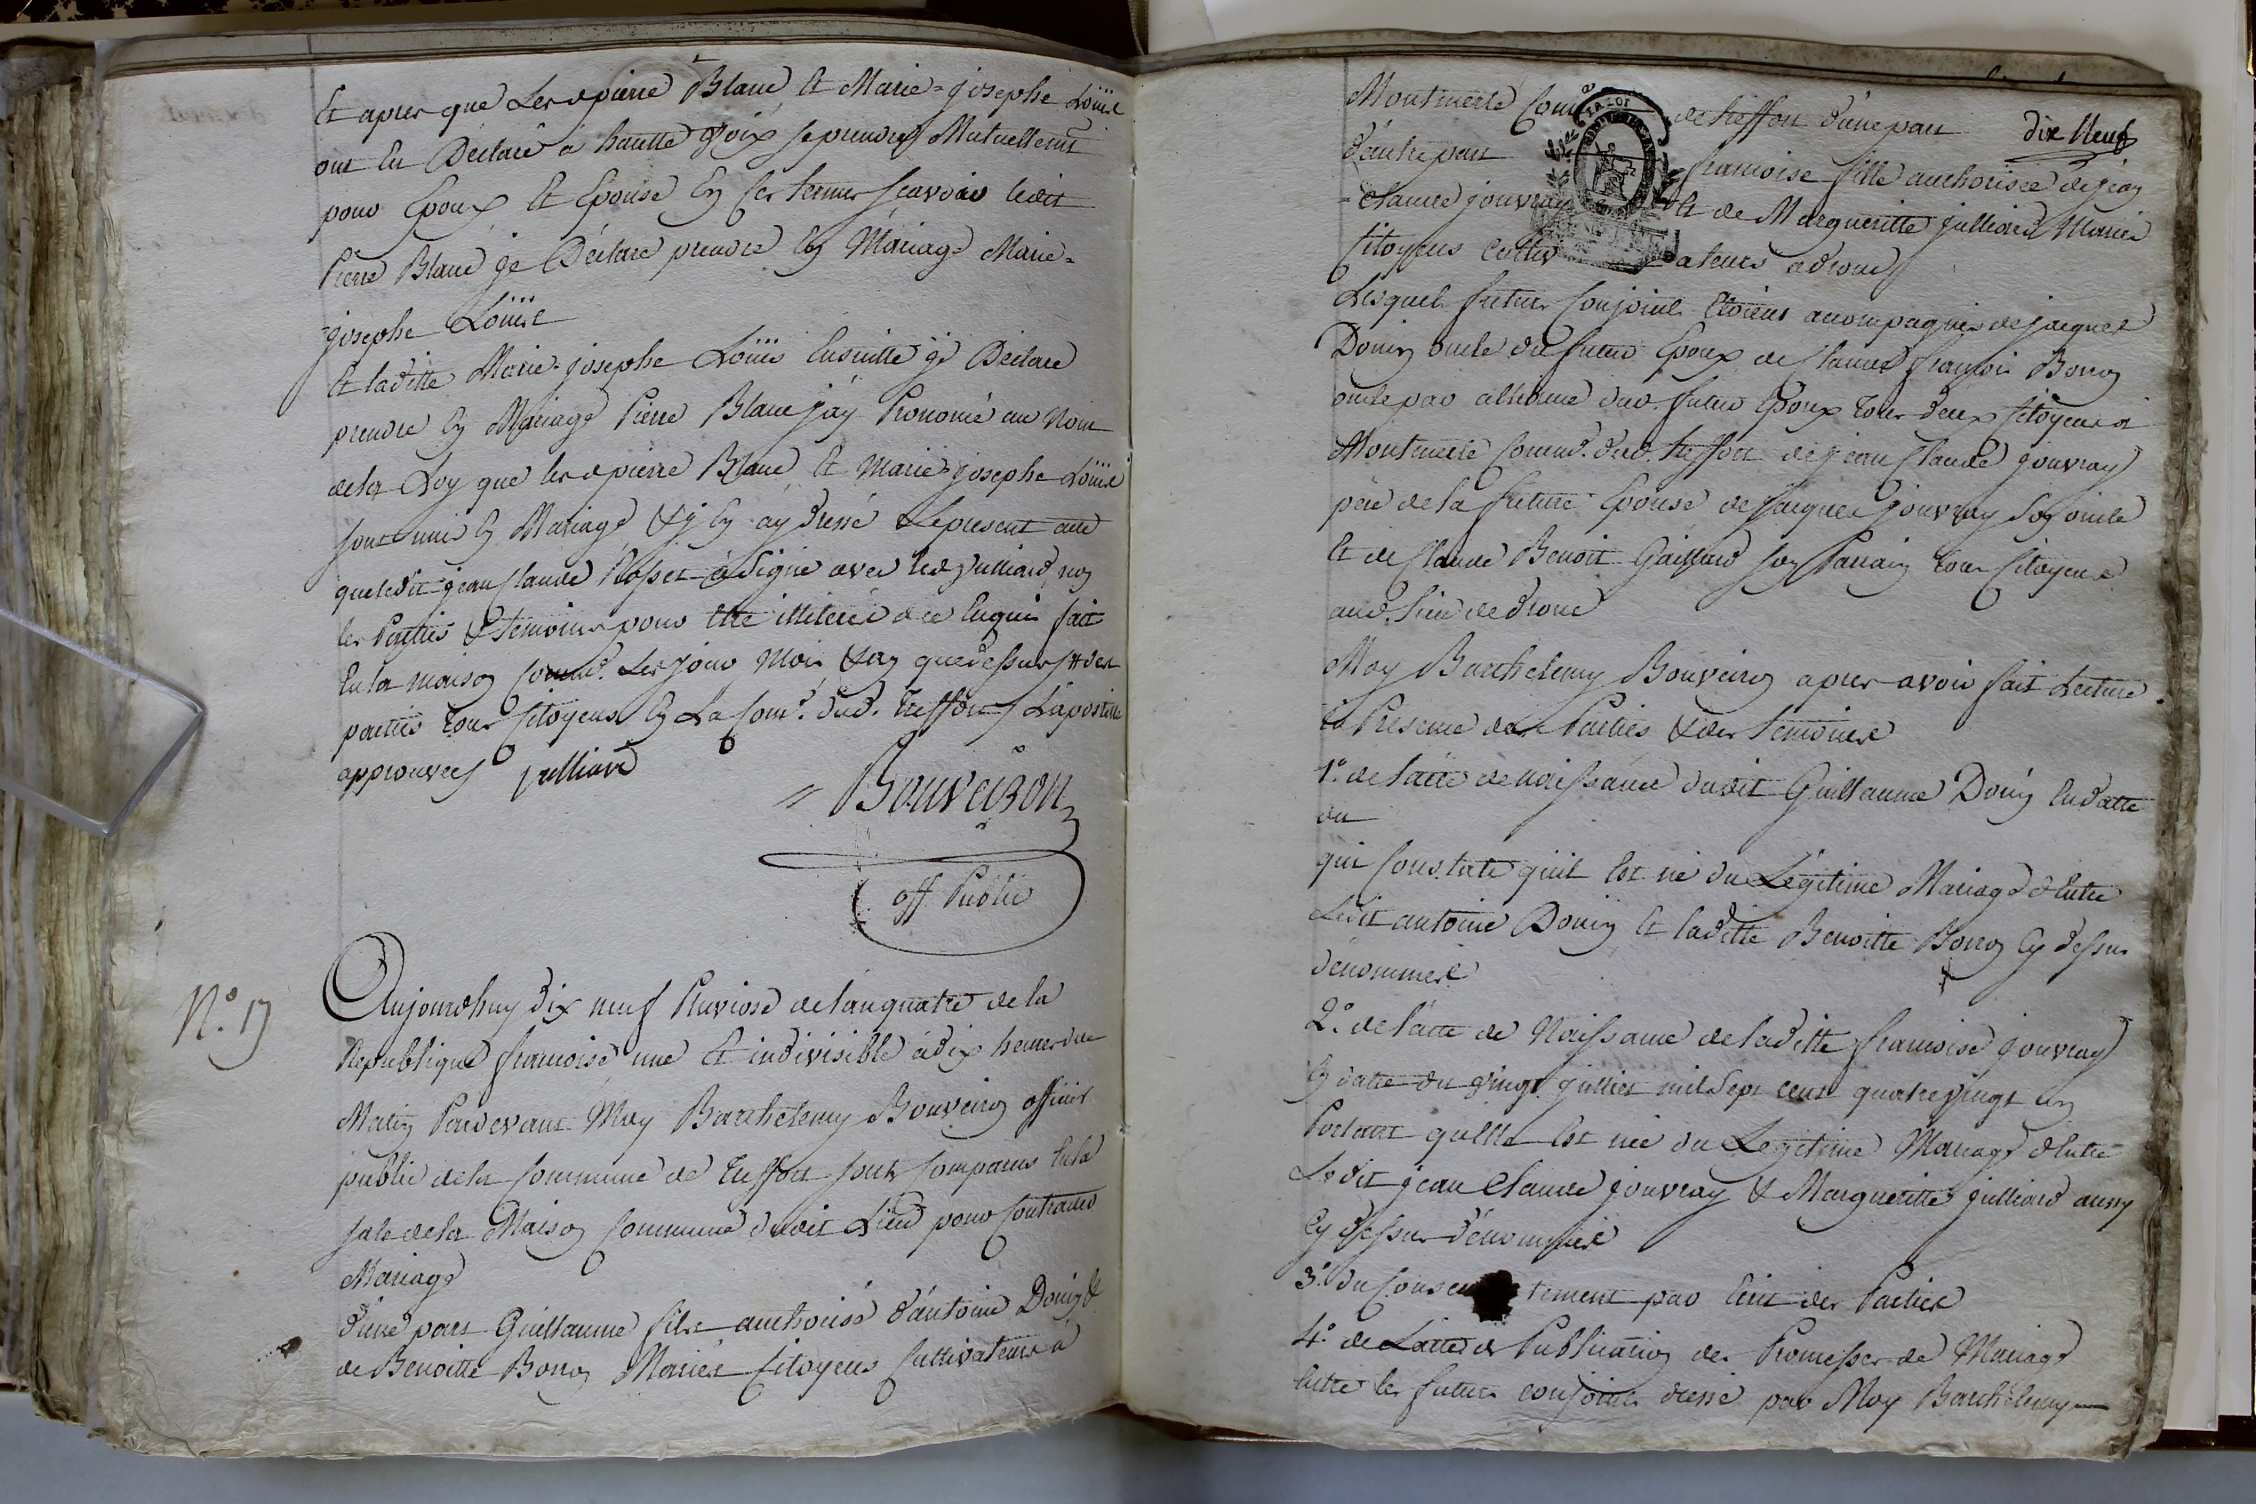 Et apres que Lesd pierre Blanc Et Marie=josephe Loüise
ont Eu Déclaré à hautte voix se prendre Mutuellemt
pour Epoux Et Epouse En ses termes scavoir ledit
Pierre Blanc je Déclare prendre En Mariage Marie=
=josephe Loüise
Et laditte Marie-josephe Loüise Ensuitte je Déclare
prendre En Mariage Pierre Blanc j'ay Prononcé au Nom
de la Loy que lesd pierre Blanc Et Marie-josephe Loüise
sont unis En Mariage & j'En ay dressé Le present acte
que ledit jean Claude a Signé avec led julliard non
les Parties & temoins pour Etre illiterés de ce Enquis fait
En la maison Comm.e Les jour Mois & an que dessus # des
parties tous Citoyens En La Com.e dud. treffort L'apostille
approuvée julliard
= Bouveiron
off. Public
N.o 17
Aujourdhuy dix neuf Pluviose de l'an quatre de la
Republique francoise une Et indivisible à dix heures du
Matin Pardevant Moy Barthelemy Bouveiron officier
public de la Commune de treffort sont Comparus En la
sale de la Maison Commune dudit Lieu pour Contracter
Mariage
d'une part Guillaume fils authorisé d'antoine Douin &
de Benoitte Boron Mariés Citoyens Cultivateurs à
dix Neuf
Montmerle Com.e de treffort d'une part
d'autre part francoise fille authorisée de jean
-Claude jouvray Et de Margueritte julliard Mariés
Citoyens cultivateurs à drom
Lesquels futurs Conjoints Etoient acompagnés de jacques
Douin oncle du futur Epoux de Claude francois Boron
oncle par alliance dud. futur Epoux tous deux Citoyens à
Montmerle Comm.e dud. treffort de jean Claude jouvray
père de la future Epouse de jacques jouvray Son oncle
Et de Claude Benoit Gaillard son Parrain tous Citoyens
aud. Lieu de drom
Moy Barthelemy Bouveiron apres avoir fait Lecture
En Presence des Parties & des temoins
1.o de l'acte de naissance dudit Guillaume Douin En datte
du
qui Constate qu'il Est né du Légitime Mariage d'Entre
Ledit antoine Douin Et laditte Benoitte Boron Cy dessus
dénommés
2.o de l'acte de Naissance de laditte francoise jouvray
En datte du vingt juillet mil Sept cent quatre vingt un
Portant qu'elle Est née du Legitime Mariage d'Entre
Ledit jean Claude jouvray & Margueritte julliard aussy
Cy dessus dénommés
3.o du Consentement par Ecrit des Parties
4.o de L'acte de Publication des Promesses de Mariage
Entre les futurs conjoints dressé par Moy Barthelemy